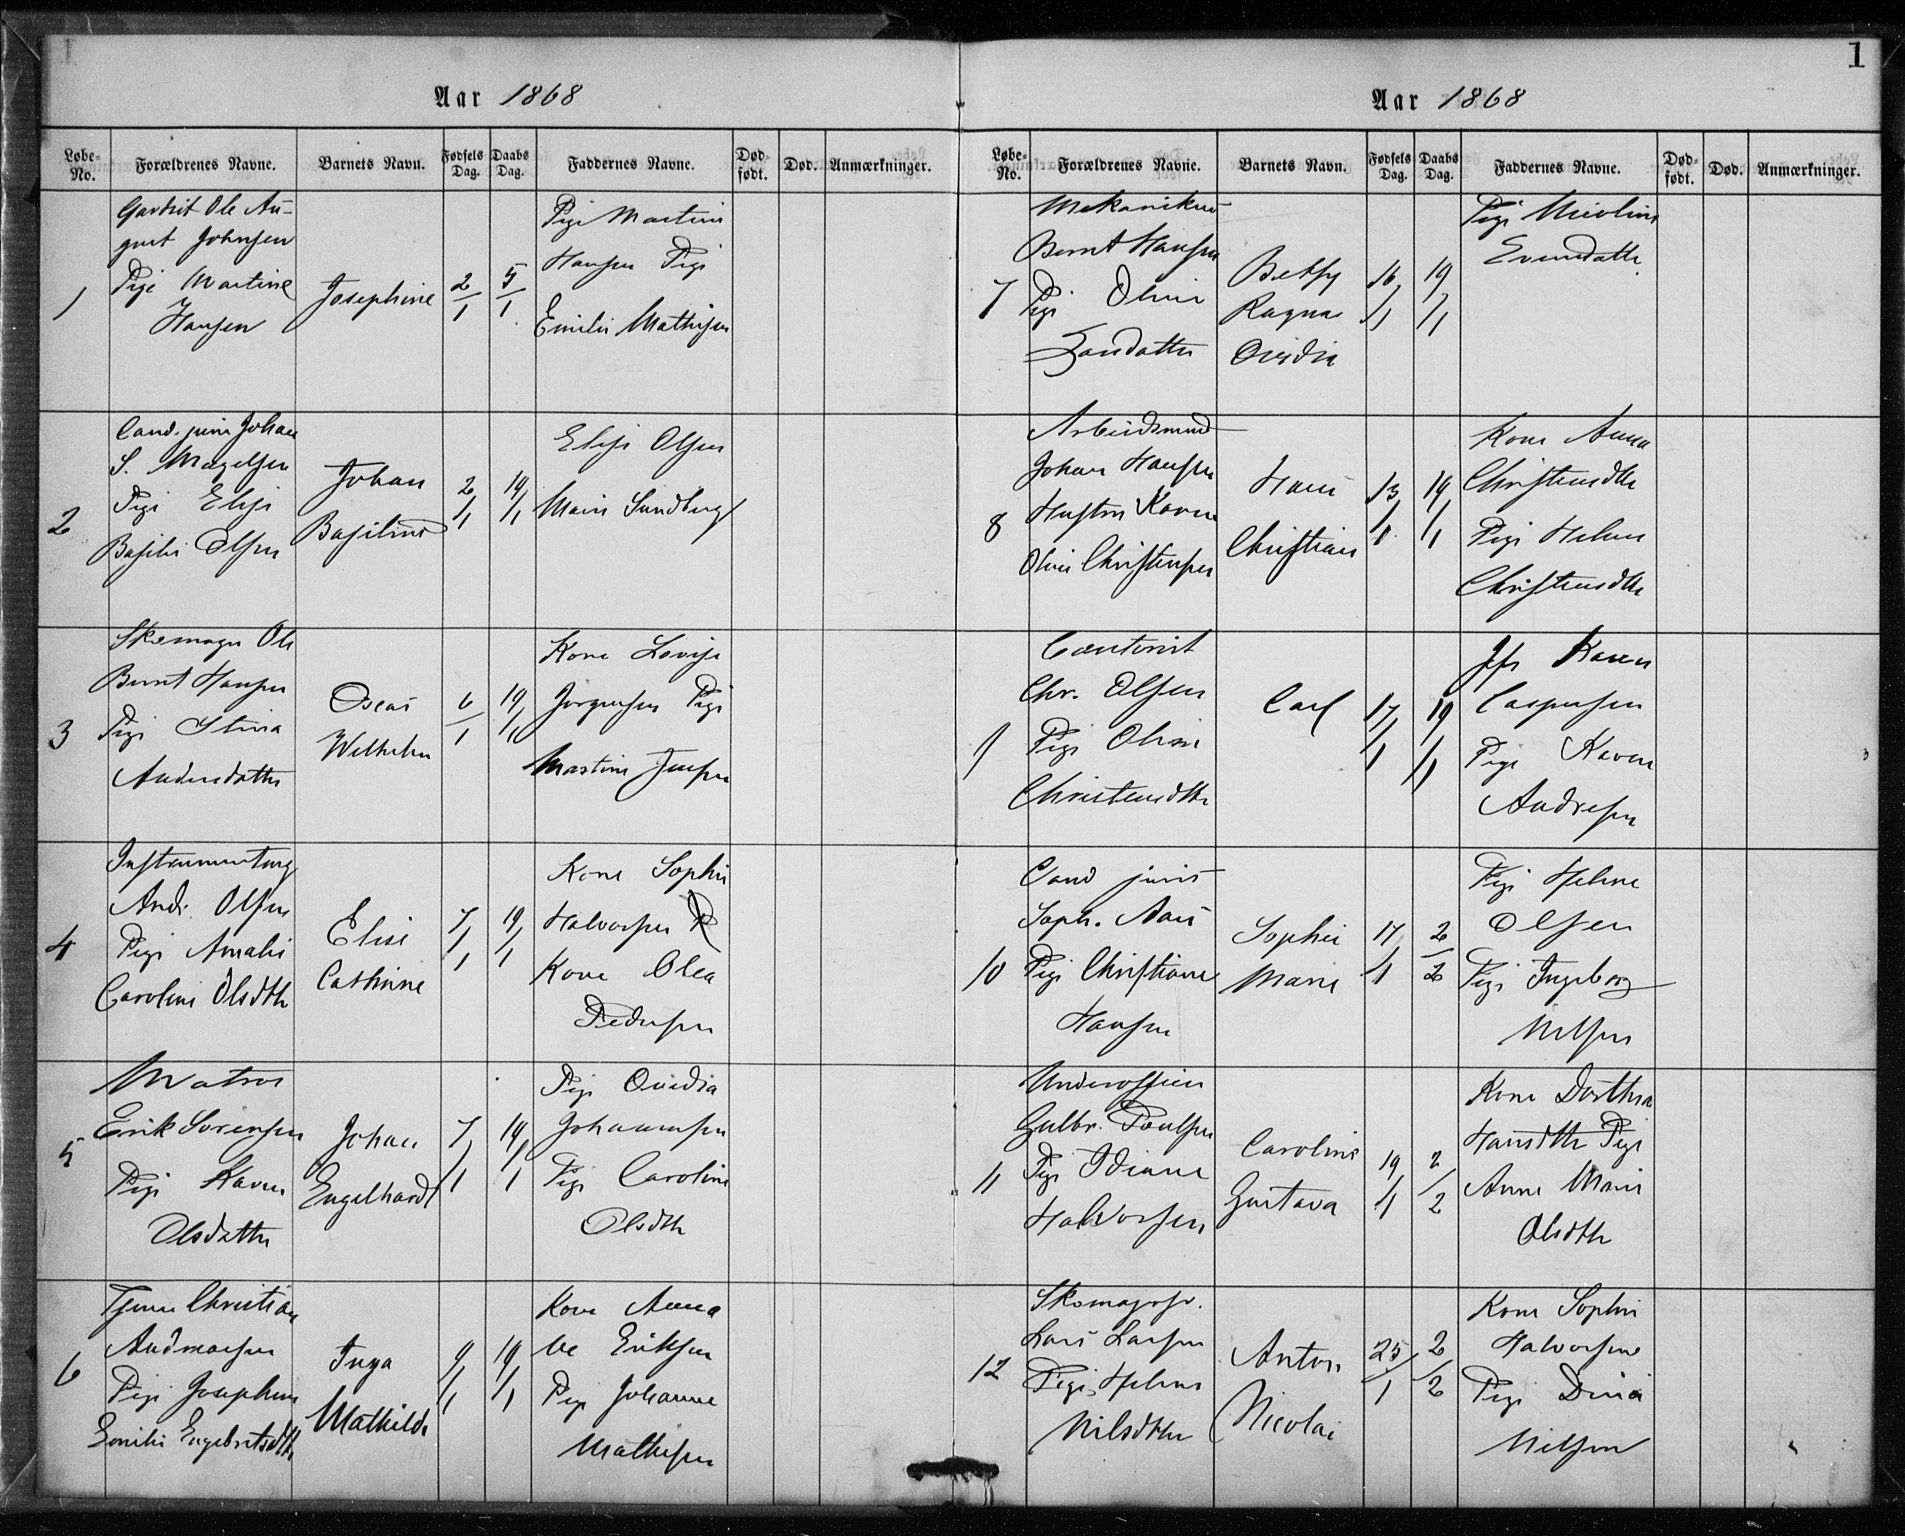 1
Aar 1868
Løbe-No.
Forældrenes Navne.
Barnets Navn.
Fødsels Dag.
Daabs Dag.
Faddernes Navne.
Død-født.
Død.
Anmærkninger.
1
Ole Au-
gust Johnsen
Pige Martine
Hansen
Josephine
2/1
5/1
Pige Martine
Hansen Pige
Emilie Mathisen
2
Cand. juris Johan
S. Magelsen
Pige Elise
Basilie Olsen
Johan
Basilius
2/1
19/1
Elise Olsen
Marie Sundberg
3
Skomager Ole
Bernt Hansen
Pige Stina
Andersdatter
Oscar
Wilhelm
6/1
19/1
Kone Lovise
Jørgensen Pige
Martine Jensen
4
Andr. Olsen
Pige Amalie
Caroline Olsdtr
Elise
Cathrine
7/1
19/1
Kone Sophie
Halvorsen
Kone Olea
Pedersen
5
Matros
Erik Sørensen
Pige Karen
Olsdatter
Johan
Engelhardt
7/1
19/1
Pige Ovidia
Johannesen
Pige Caroline
Olsdtr
6
Tjener Christian
Andreasen
Pige Josephine
Emilie Engebretsdtr
Inga
Mathilde
9/1
19/1
Kone Anna
Eriksen
Pige Johanne
Mathisen
Aar 1868
Løbe-No.
Forældrenes Navne.
Barnets Navn.
Fødsels Dag.
Daabs Dag.
Faddernes Navne.
Død-født.
Død.
Anmærkninger.
7
Mekanikus
Bernt Hansen
Pige Oline
Larsdatter
Betsy
Ragna
Ovidia
16/1
19/1
Pige Nicoline
Evensdatter
8
Arbeidsmand
Johan Hansen
Hustru Karen
Oline Christensen
Hans
Christian
13/1
19/1
Kone Anna
Christensdtr
Pige Helene
Christensdtr
9
Contorist
Chr. Olsen
Pige Oline
Christensdtr
Carl
17/1
19/1
Jfr Karen
Caspersen
Pige Karen
Andresen
10
Cand juris
Soph. Aars
Pige Christiane
Hansen
Sophie
Marie
17/1
2/2
Pige Helene
Olsen
Pige Ingeborg
Nilsen
11
Underofficer
Gulbr. Poulsen
Pige Idiane
Halvorsen
Caroline
Gustava
19/1
2/2
Kone Dorthea
Hansdtr Pige
Anne Marie
Olsdtr
12
Skomagersv.
Lars Larsen
Pige Helene
Nilsdtr
Anton
Nicolai
25/1
2/2
Kone Sophie
Halvorsen
Pige Dina
Nilsen